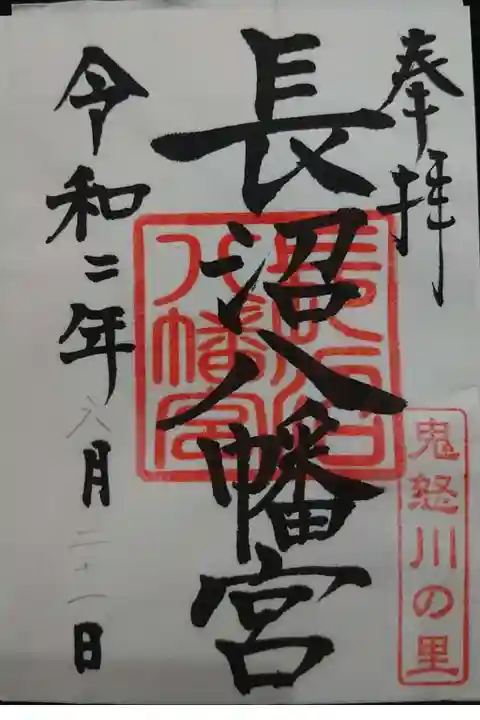 奉拝
鬼怒川の里
長沼八幡宮
長沼
八幡宮
令和二年八月二十一日